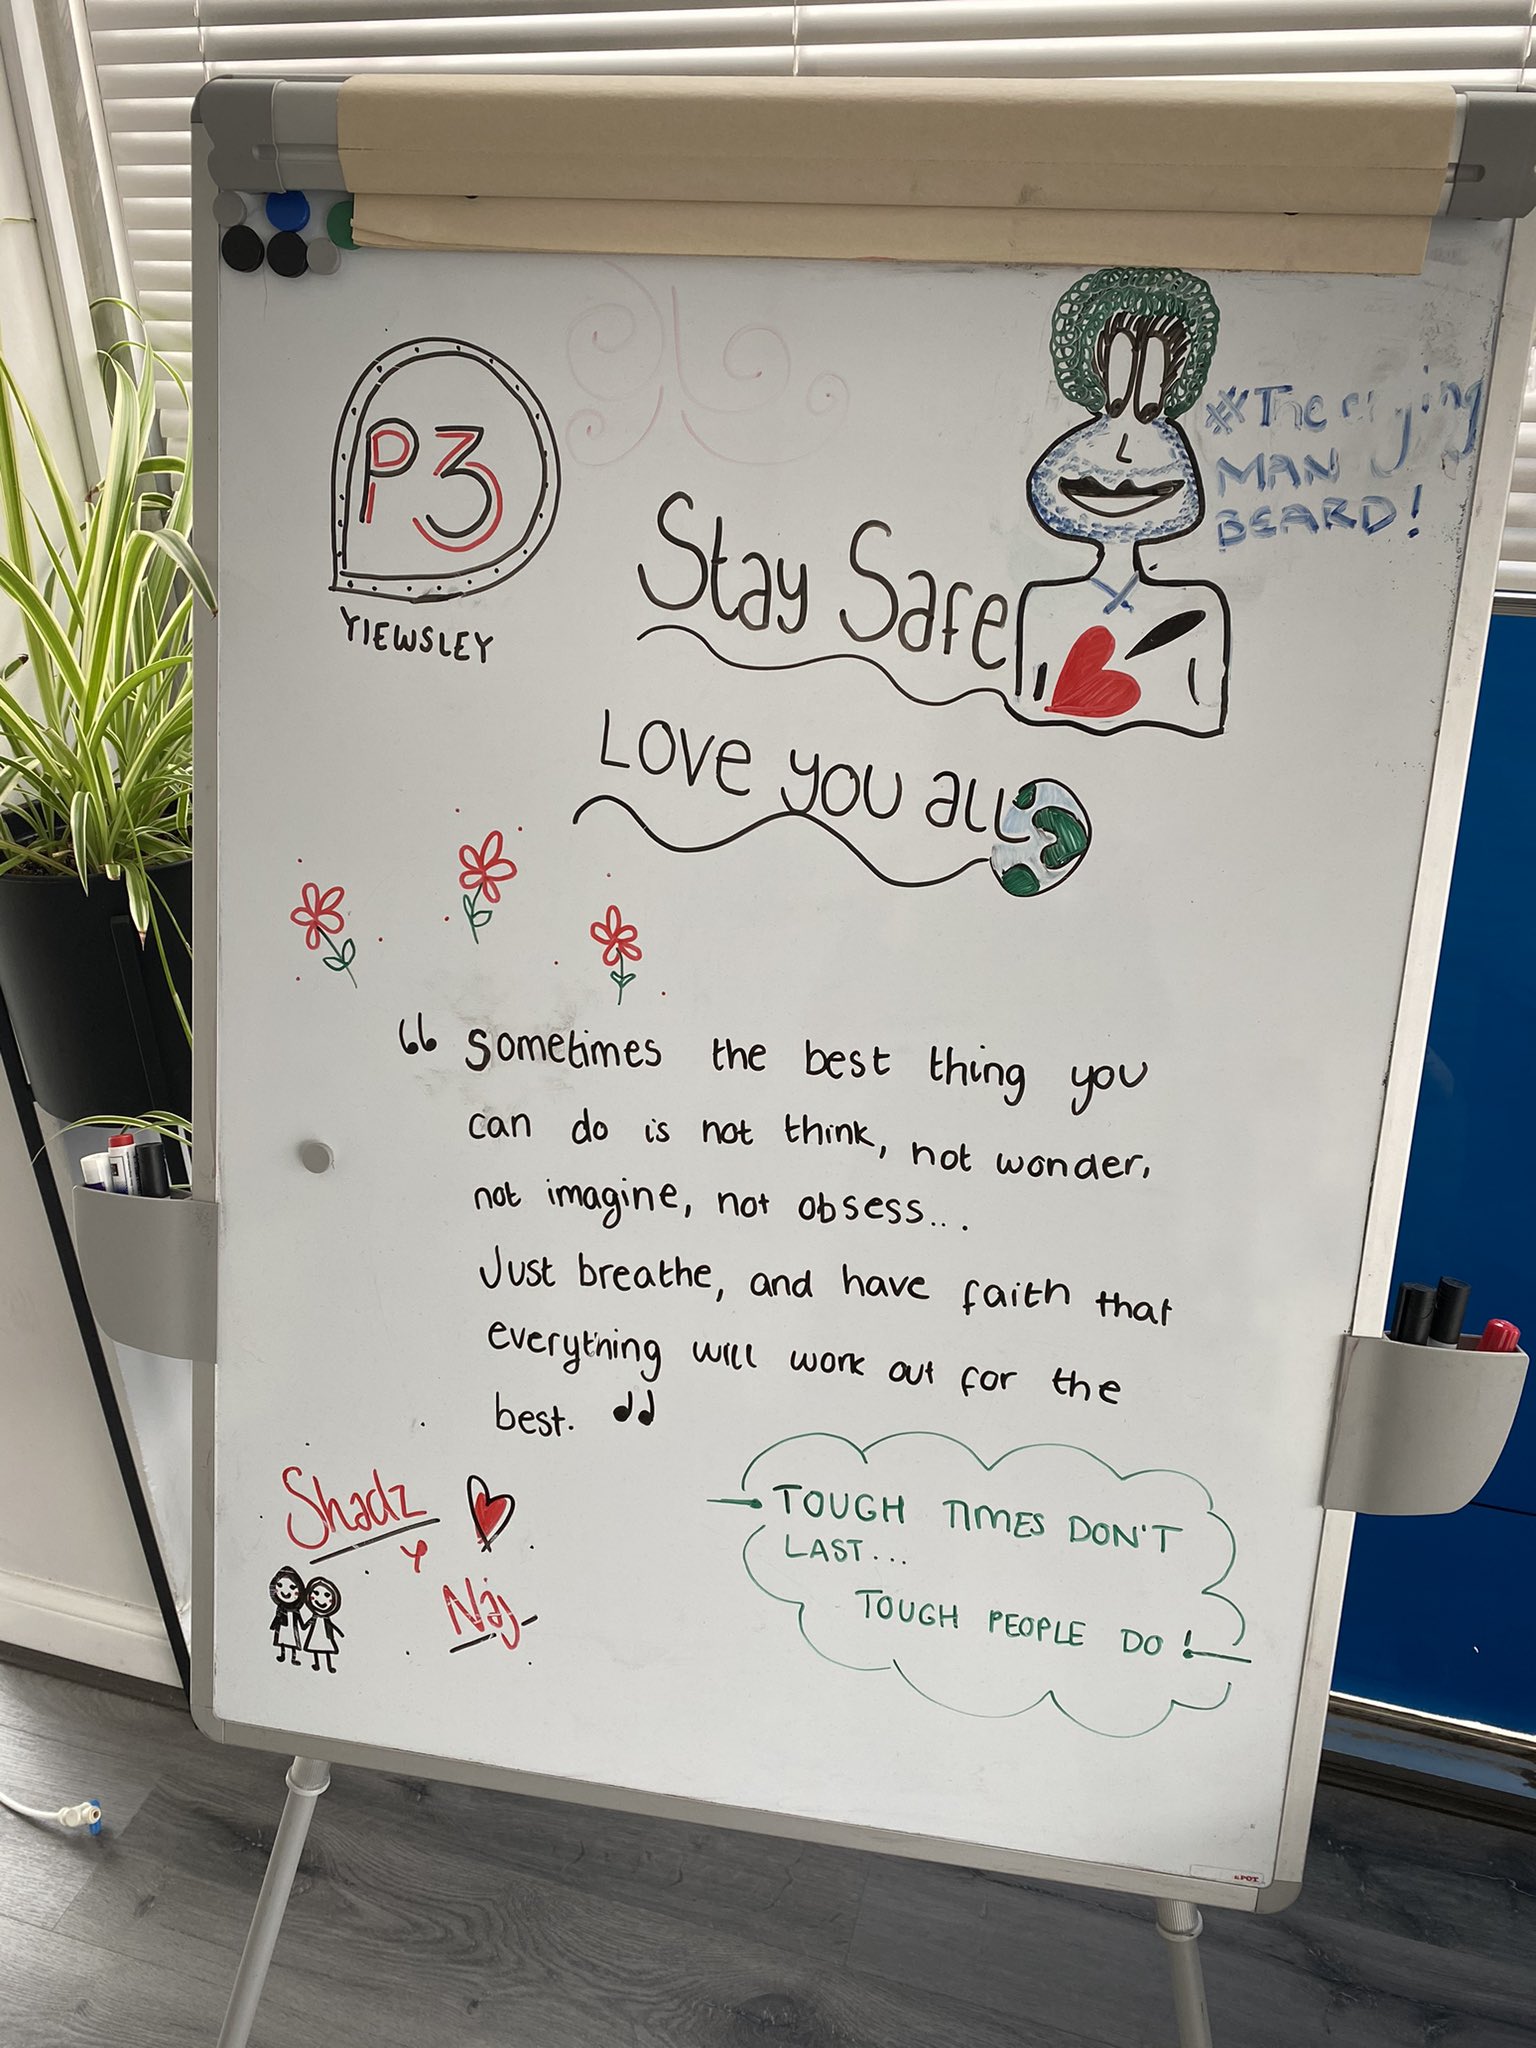 P3
YIEWSLEY
#The
MAN
BEARD!
Stay Safe
LOVE YOU ALL
“ Sometimes the best thing you
can do is not think, not wonder,
not imagine, not obsess...
Just breathe, and have faith that
everything will work out for the
best. ”
Shadz
Y
Naj
TOUGH TIMES DON'T
LAST...
TOUGH PEOPLE DO!